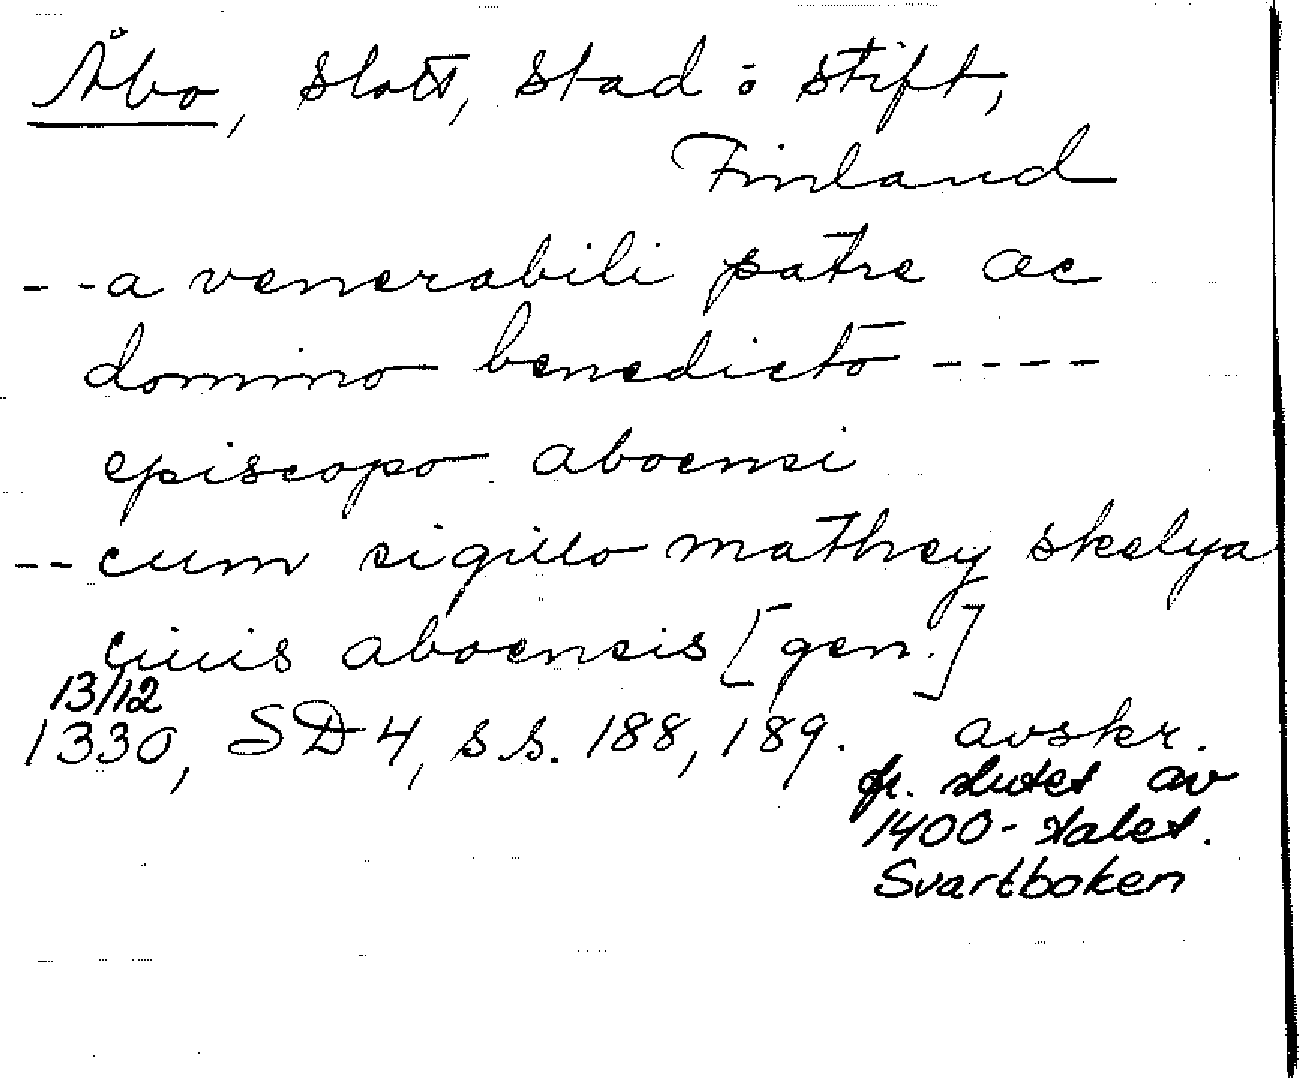 Åbo, slott, stad o stift,
Finland
--a venerabili patre ac
domino benedicto ----
episcopo aboensi
--cum sigillo mathey skelya
ciuis aboensis [gen.]
13/12
1330, SD 4, s s. 188, 189. avskr.
fr. slutet av
1400-talet.
Svartboken